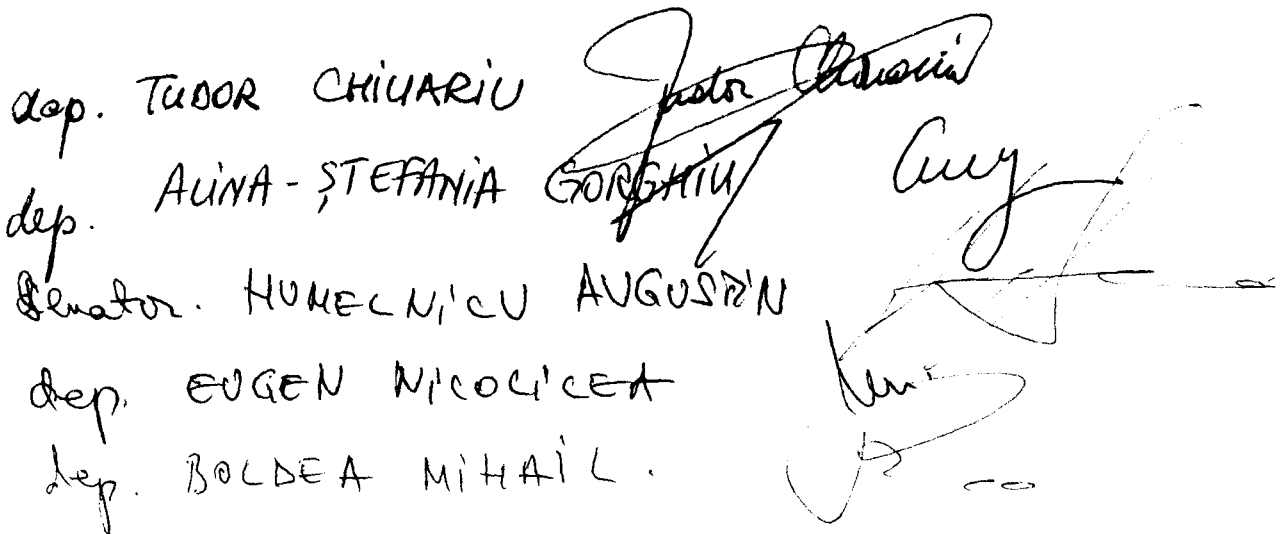 dep. TUDOR CHIUARIU Tudor Chiuariu
dep. ALINA-ȘTEFANIA GORGHIU
Senator. HUMELNICU AUGUSTIN
dep. EUGEN NICOLICEA
dep. BOLDEA MIHAIL.